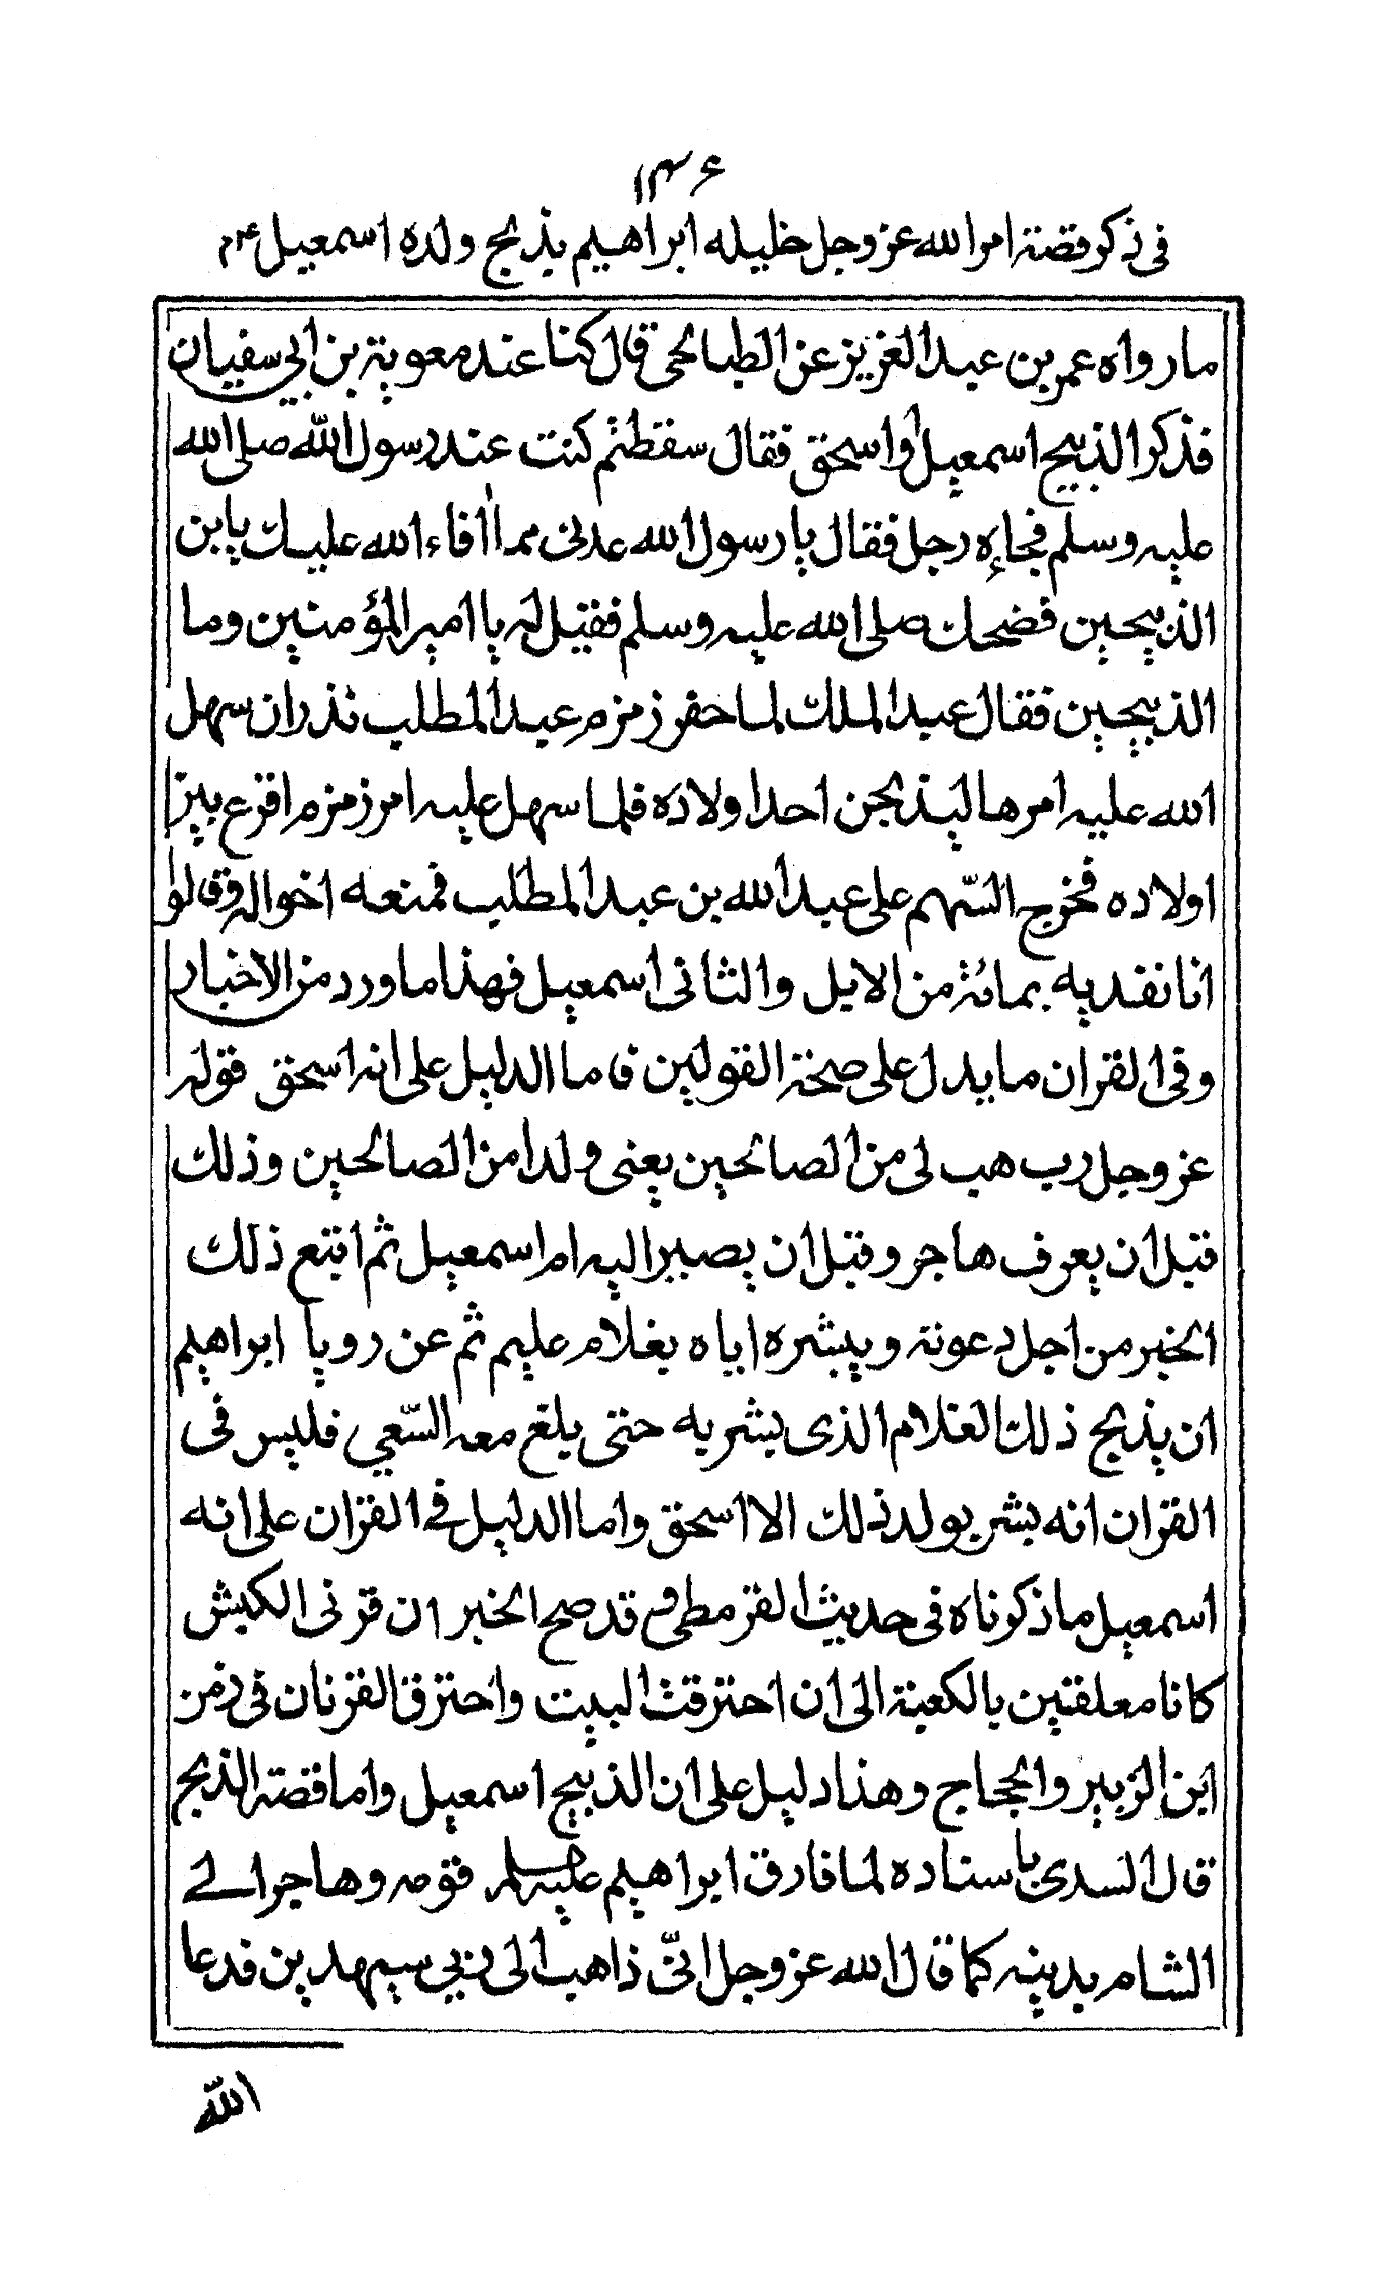 ١٣٤
في ذكر قصة امر الله عز وجل خليله ابراهيم بذبح ولده اسمعيل ع م
ما رواه عمر بن عبد العزيز عن الطبالحى قال كنا عند معوية بن ابي سفيان
فذكر الذبيح اسمعيل أو اسحق فقال سقطتم كنت عند رسول الله صلى الله
عليه وسلم فجاءه رجل فقال يا رسول الله عدنى مما أفاء الله عليك يا بن
الذبيحين فضحك صلى الله عليه وسلم فقيل له يا امير المؤمنين وما
الذبيحين فقال عبد الملك لما حفر زمزم عبد المطلب نذر ان سهل
الله عليه امرها ليذبحن احد اولاده فلما سهل عليه امر زمزم اقرع بين
اولاده فخرج السّهم على عبد الله بن عبد المطلب فمنعه اخواله وقالوا
انا نفديه بمائة من الابل والثانى اسمعيل فهذا ما ورد من الاخبار
وفى القران ما يدل على صحة القولين فاما الدليل على انه اسحق قوله
عز وجل رب هب لى من الصالحين يعنى ولدا من الصالحين وذلك
قبل ان يعرف هاجر وقبل ان يصير اليه ام اسمعيل ثم اتبع ذلك
الخبر من اجل دعوته وبيشره اياه بغلام عليم ثم عن رويا ابراهيم
ان يذبح ذلك الغلام الذى بشر به حتى بلغ معه السّعي فليس فى
القران انه بشر بولد ذلك الا اسحق واما الدليل في القران على انه
اسمعيل ما ذكوناه فى حديث القرمطى وقد صح الخبر ان قرنى الكبش
كانا معلقين بالكعبة الى ان احترقت البيت واحترق القرنان فى زمن
ابن الزبير والحجاج وهذا دليل على ان الذبيح اسمعيل واما قصة الذبح
قال السدى باسناده لما فارق ابراهيم عليه السلم قومه وهاجر الے
الشام بدينه كما قال الله عز وجل انىّ ذاهب الى ربي سيهدين فدعا
اللّه